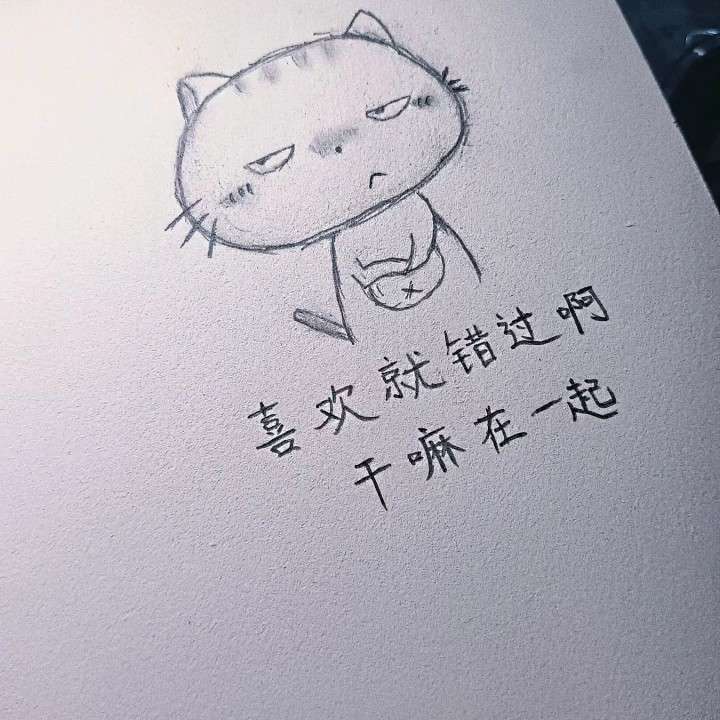 喜欢就错过啊
干嘛在一起